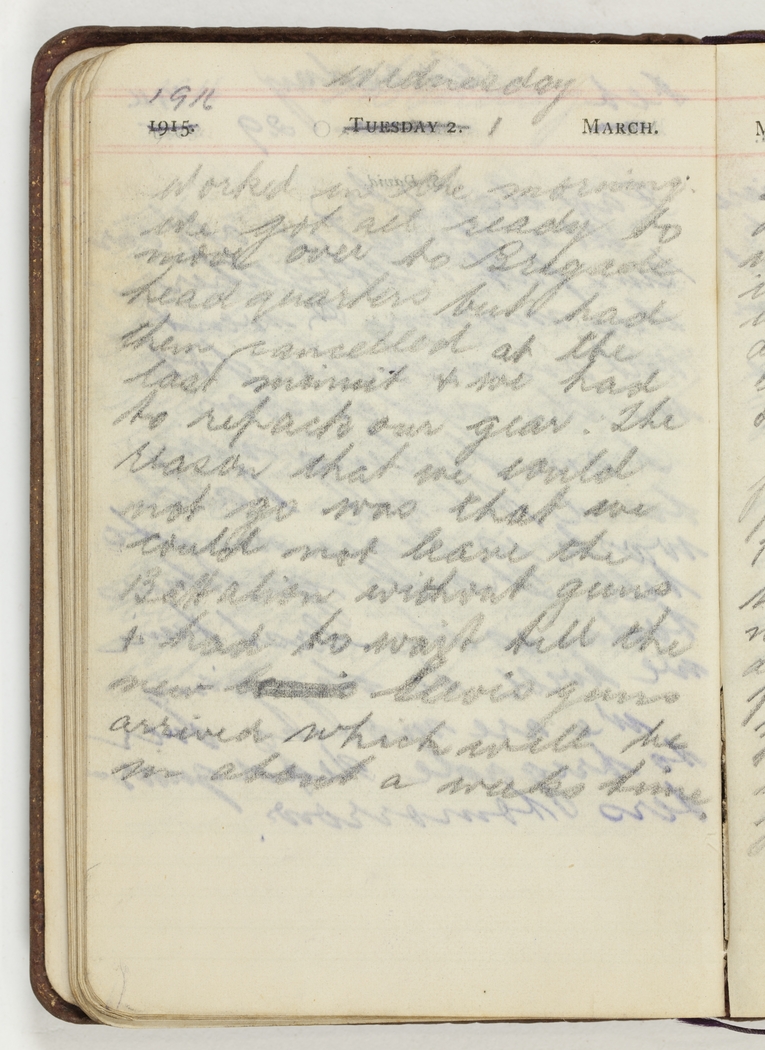 Wednesday
1916
1915. TUESDAY 2. 1 MARCH.
Worked in the morning.
We got all ready to
move over to Brigade
head quarters but had
them cancelled at the
last minuit & we had
to repack our gear. The
reason that we could
not go was that we
could not leave the
Battalion without guns
& had to wait till the
new Lewis guns
arrived which will be
in about a weeks time